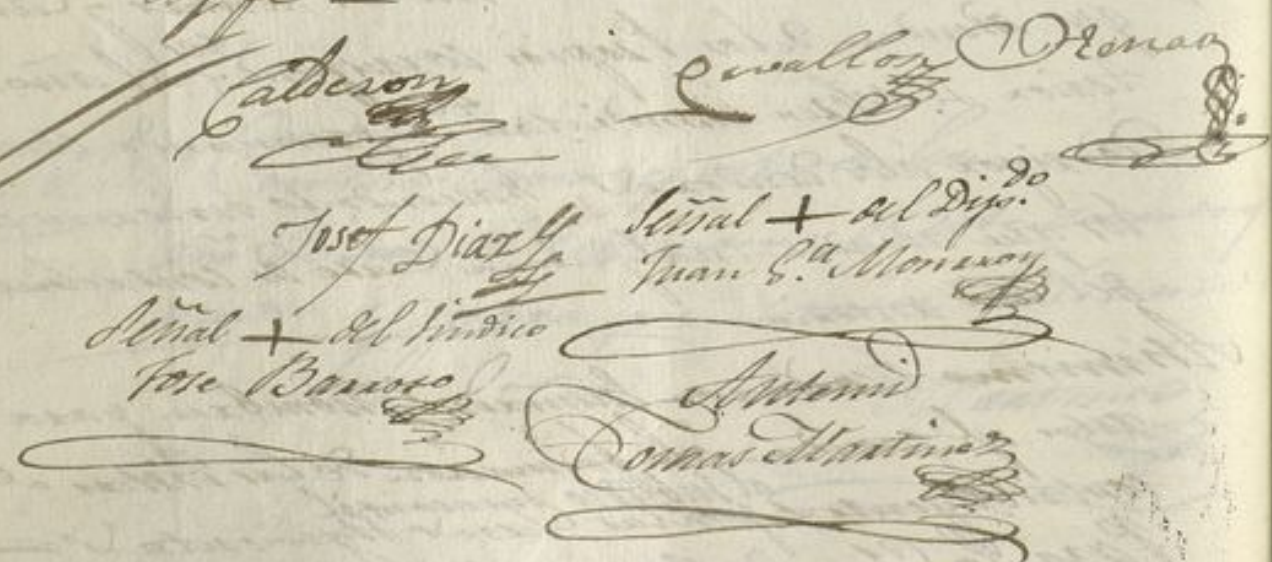 Calderon Cevallos
Josef Diaz Señal + del Dip.do
Juan G.a Monrroy
Señal + del Sindico
Jose Barroso
Antemi
Tomas Martinez